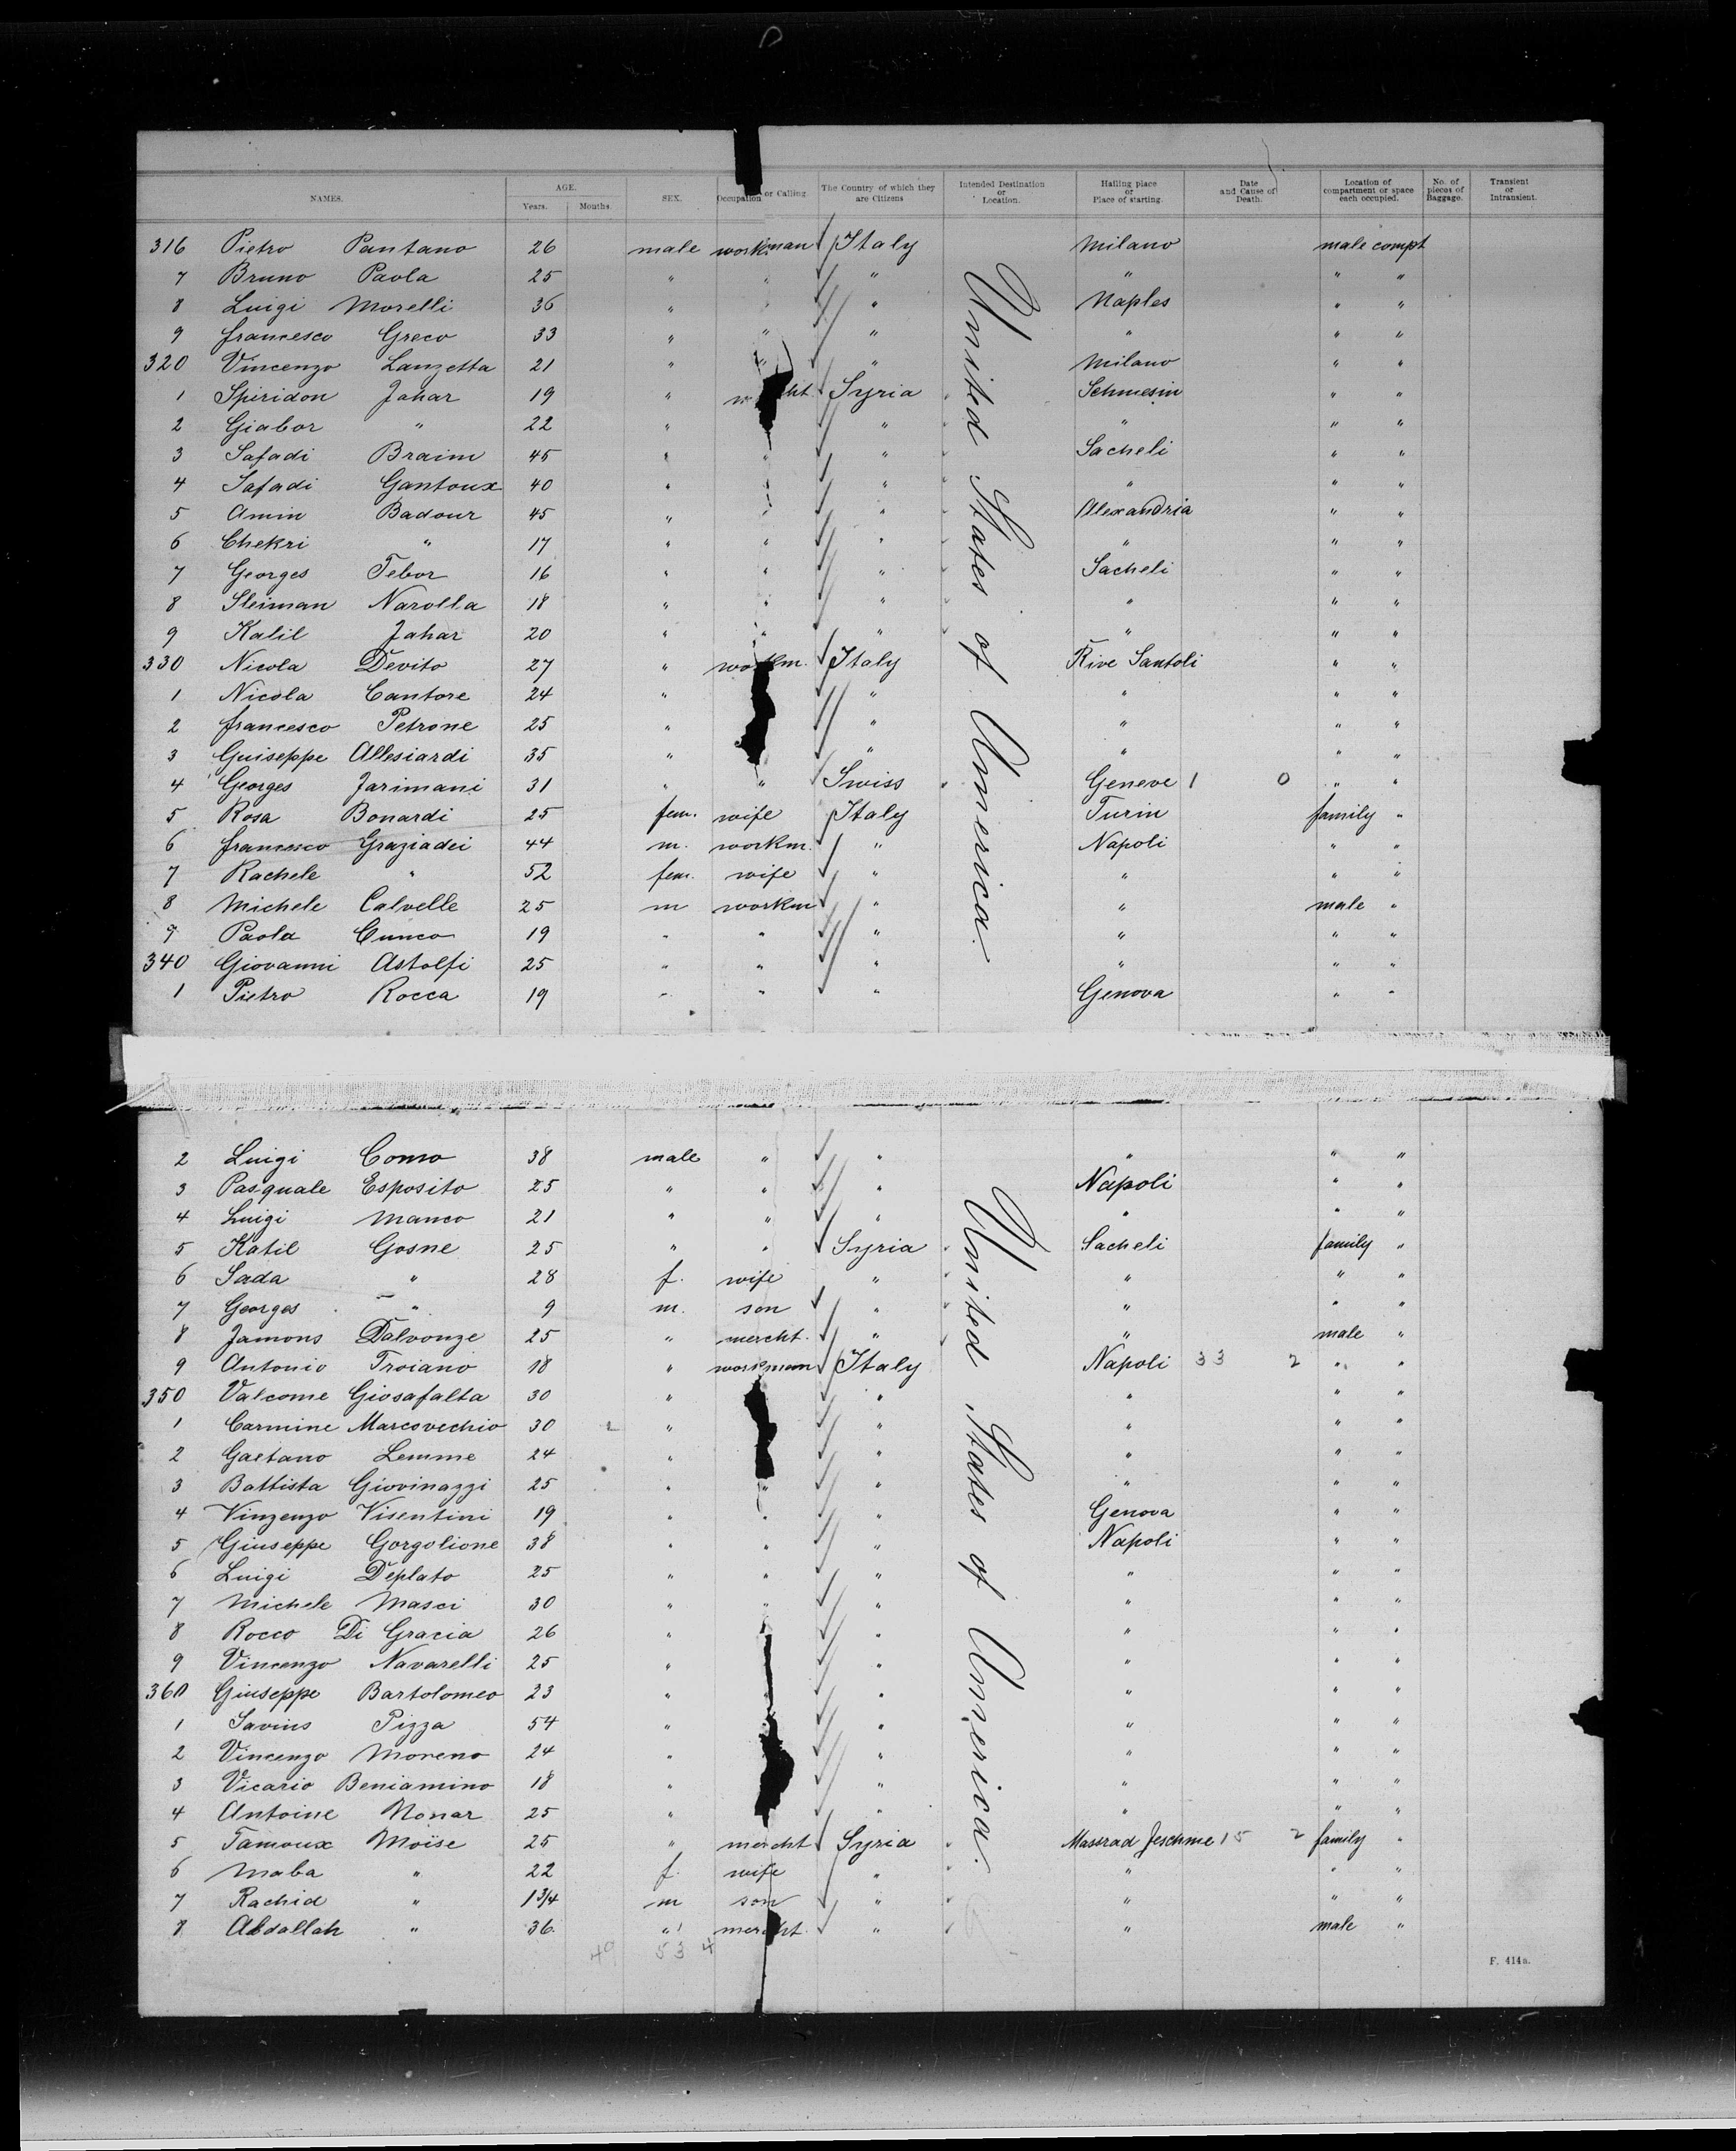 NAMES. AGE. Years. Months. SEX. Occupation or Calling. The Country of which they are Citizens Intended Destination or Location. Hailing place or Place of starting. Date and Cause of Death. Location of compartment or space each occupied. No. of pieces of Baggage. Transient or Intransient.
316 Pietro Pantano 26 male workman Italy Milano male compt
7 Bruno Paola 25 " " " " " "
8 Luigi Morelli 36 " " " Naples " "
9 francesco Greco 33 " " " " " "
320 Vincenzo Lanzetta 21 " " " Milano " "
1 Spiridon Jahar 19 " Syria Schmesin " "
2 Giabor " 22 " " " " " "
3 Safadi Braim 45 " " " Sacheli " "
4 Safadi Gantoux 40 " " " " " "
5 Amin Badour 45 " " " Alexandria " "
6 Chekri " 17 " " " " " "
7 Georges Tebor 16 " " " Sacheli " "
8 Sleiman Narolla 18 " " " " " "
9 Kalil Jahar 20 " " " " " "
330 Nicola Devito 27 " workm. Italy Rive Santoli " "
1 Nicola Cantore 24 " " " " "
2 francesco Petrone 25 " " " " "
3 Guiseppe Allesiardi 35 " " " " "
4 Georges Jarimani 31 " " Swiss " Geneve 1 0 " "
5 Rosa Bonardi 25 fem. wife Italy Turin family "
6 francesco Graziadei 44 m. workm. " Napoli " "
7 Rachele " 52 fem. wife " " " "
8 Michele Calvelle 25 m workm " " male "
9 Paola Cunco 19 " " " " " "
340 Giovanni Astolfi 25 " " " " " "
1 Pietro Rocca 19 " " " Genova " "
United States of America.
2 Luigi Como 38 male " " " " "
3 Pasquale Esposito 25 " " " Napoli " "
4 Luigi Manco 21 " " " " " "
5 Katil Gosne 25 " " Syria " Sacheli family "
6 Sada " 28 f. wife " " " "
7 Georges " 9 m. son " " " " "
8 Jamons Dalvonze 25 " mercht. " " " male "
9 Antonio Troiano 18 " workman Italy Napoli 33 2 " "
350 Valcome Giosafalta 30 " " " " "
1 Carmine Marcovechio 30 2 " " " " "
2 Gaetano Lemme 24 " " " " "
3 Battista Giovinazzi 25 " " " " " "
4 Vinzenzo Visentini 19 " " " Genova " "
5 Giuseppe Gorgolione 38 " " " Napoli " "
6 Luigi Deplato 25 " " " " " "
7 Michele Masci 30 " " " " " "
8 Rocco Di Gracia 26 " " " " "
9 Vincenzo Navarelli 25 " " " " "
360 Giuseppe Bartolomeo 23 " " " " " "
1 Savins Pizza 54 " " " " "
2 Vincenzo Moreno 24 " " " " "
3 Vicario Beniamino 18 " " " " "
4 Antoine Monar 25 " " " " "
5 Tamoux Moïse 25 " mercht Syria " Maserad Jeschme 15 2 family "
6 Maba " 22 f. wife " " " "
7 Rachid " 1 3/4 m son " " " " "
8 Abdallah " 36. " mercht. " " " male "
United States of America.
49 53 4
F. 414a.